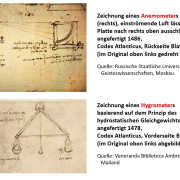 Zeichnung eines Anemometers
(rechts), einströmende Luft läss
Platte nach rechts oben ausschl
angefertigt 1486,
Codex Atlanticus, Rückseite Bla
(im Original oben links gedreht
Quelle: Russische Staatliche Univers
Geisteswissenschaften, Moskau
Zeichnung eines Hygrometers
basierend auf dem Prinzip des
hydrostatischen Gleichgewichts
angefertigt 1478,
Codex Atlanticus, Vorderseite B
(im Original oben links abgebild
Quelle: Veneranda Biblioteca Ambros
Mailand